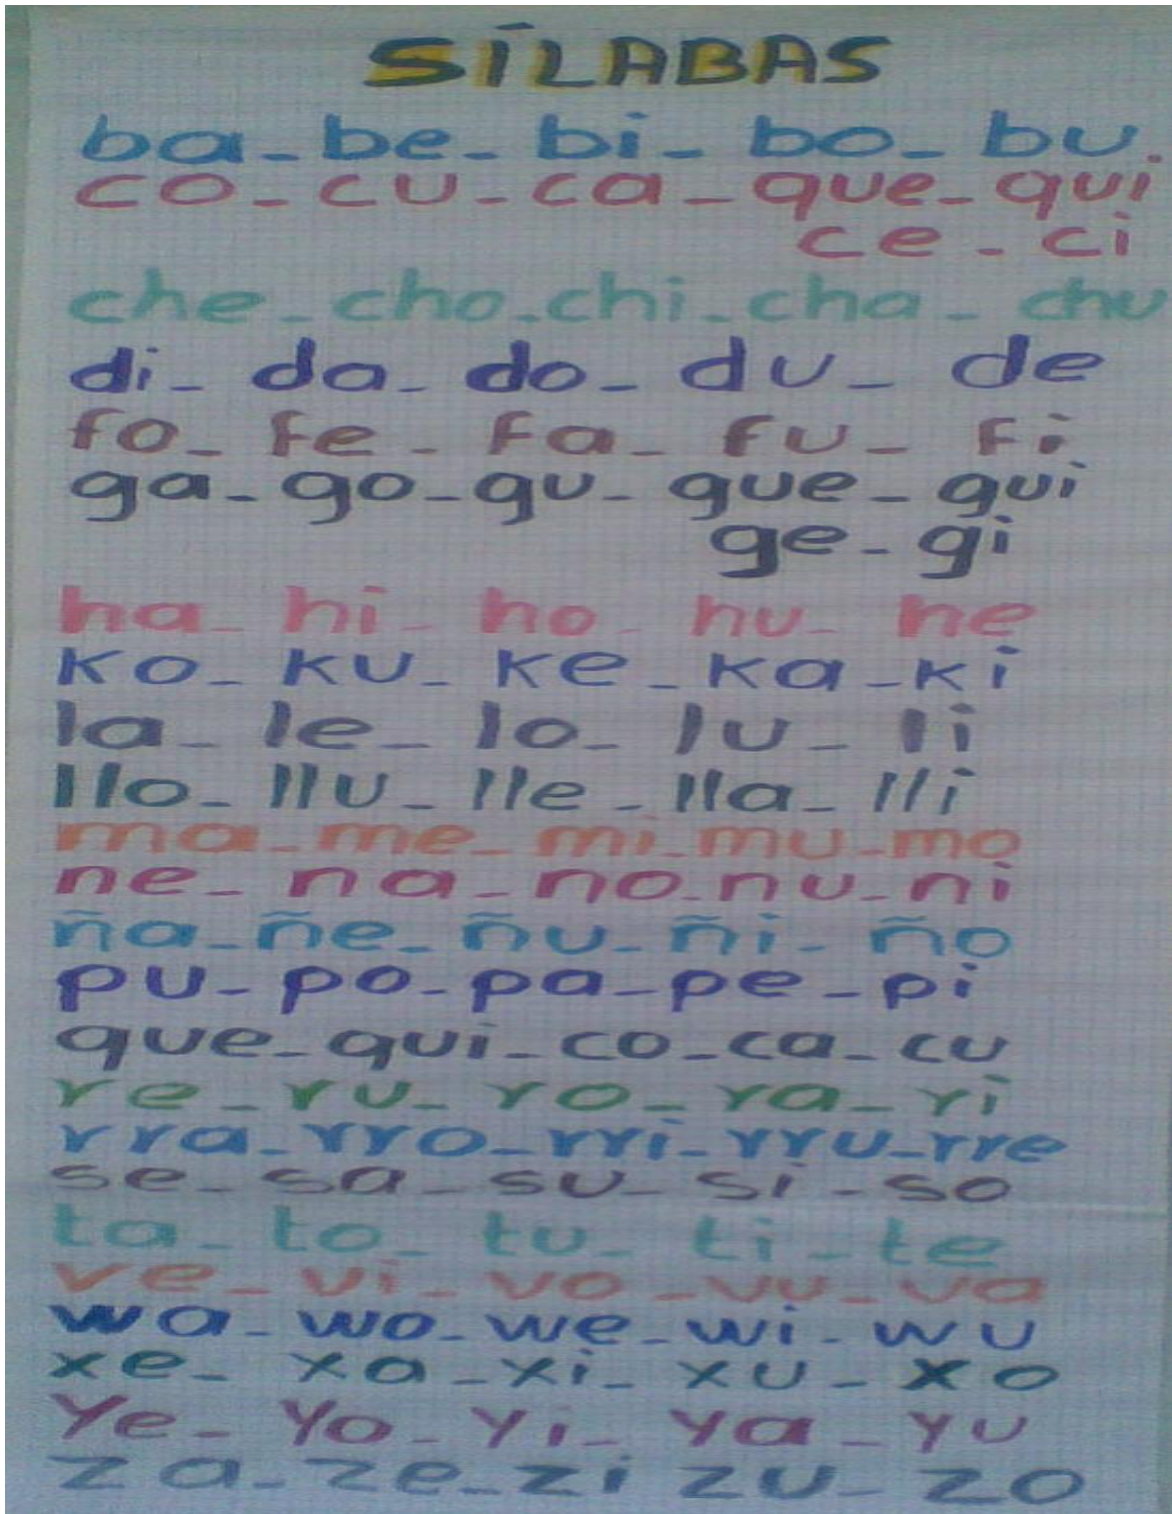 SÍLABAS
ba - be - bi - bo - bu.
co - cu - ca - que - qui
ce - ci
che - cho - chi - cha - chu
di - da - do - du - de
fo - fe - fa - fu - fi
ga - go - gu - gue - gui
ge - gi
ha - hi - ho - hu - he
ko - ku - ke - ka - ki
la - le - lo - lu - li
llo - llu - lle - lla - lli
ma - me - mi - mu - mo
ne - na - no - nu - ni
ña - ñe - ñu - ñi - ño
pu - po - pa - pe - pi
que - qui - co - ca - cu
re - ru - ro - ra - ri
rra - rro - rri - rru - rre
se - sa - su - si - so
ta - to - tu - ti - te
ve - vi - vo - vu - va
wa - wo - we - wi - wu
xe - xa - xi - xu - xo
Ye - Yo - Yi - Ya - Yu
za - ze - zi zu - zo